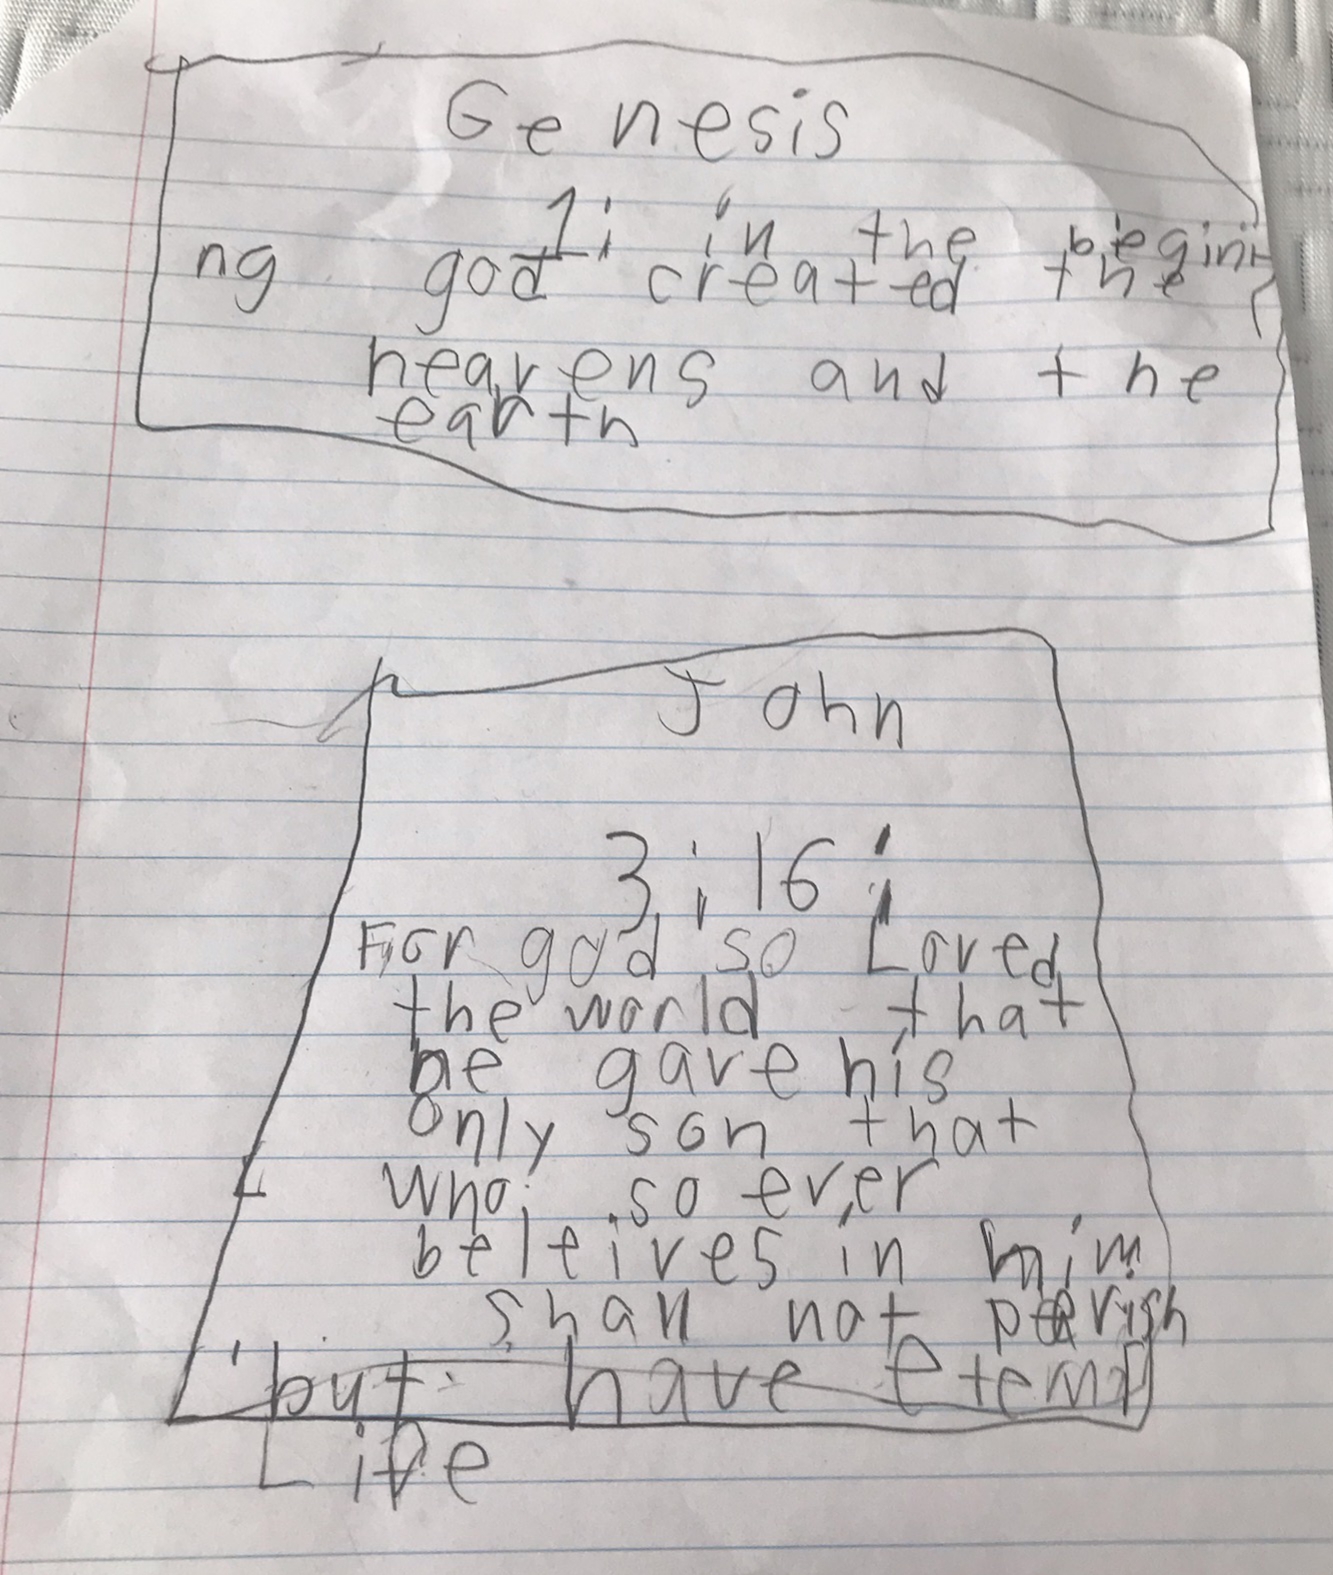 Genesis
1: in the begini
ng god created the
heavens and the
earth
John
3:16:
For god so Loved
the world that
he gave his
only son that
who so ever
beleives in him
shall not perish
but have eternal
Life